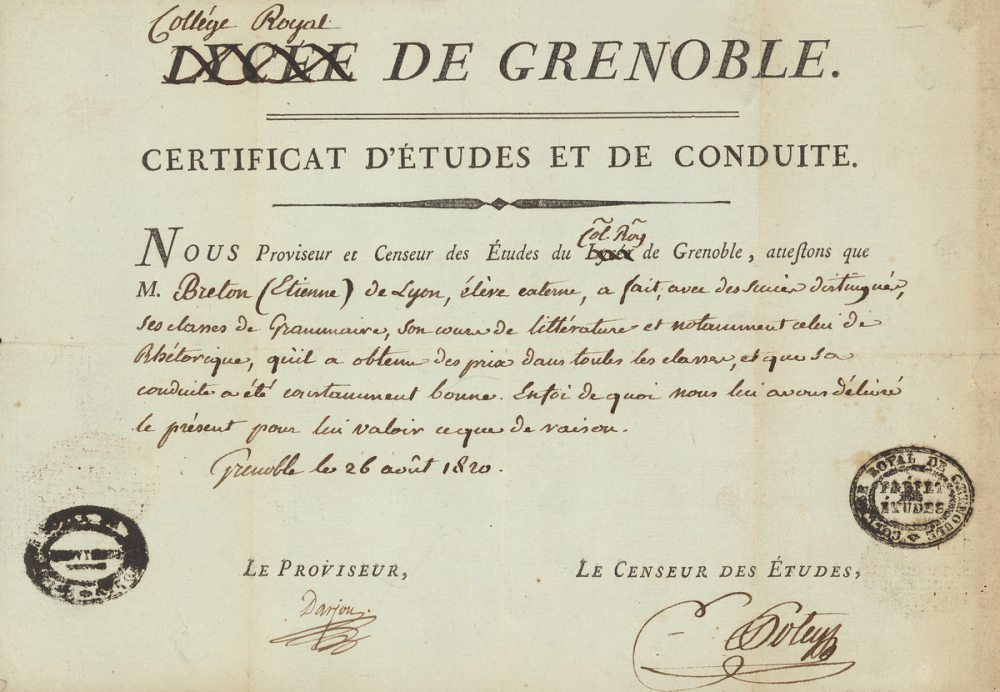 Collége Royal
LYCÉE DE GRENOBLE.
CERTIFICAT D'ÉTUDES ET DE CONDUITE.
Col̃ Roỹ
NOUS Proviseur et Censeur des Études du Lycée de Grenoble, atteſtons que
M. Breton (Etienne) de Lyon, élève externe, a fait, avec des succès distingués,
ses classes de Grammaire, son cours de littérature et notamment celui de
Rhétorique, qu'il a obtenu des prix dans toutes les classes, et que sa
conduite a été constamment bonne. En foi de quoi nous lui avons délivré
le présent pour lui valoir ce que de raison.
Grenoble le 26 août 1820.
COLLEGE ROYAL DE GRENOBLE
ÉTUDES
LE PROVISEUR,
LE CENSEUR DES ÉTUDES,
Darjou